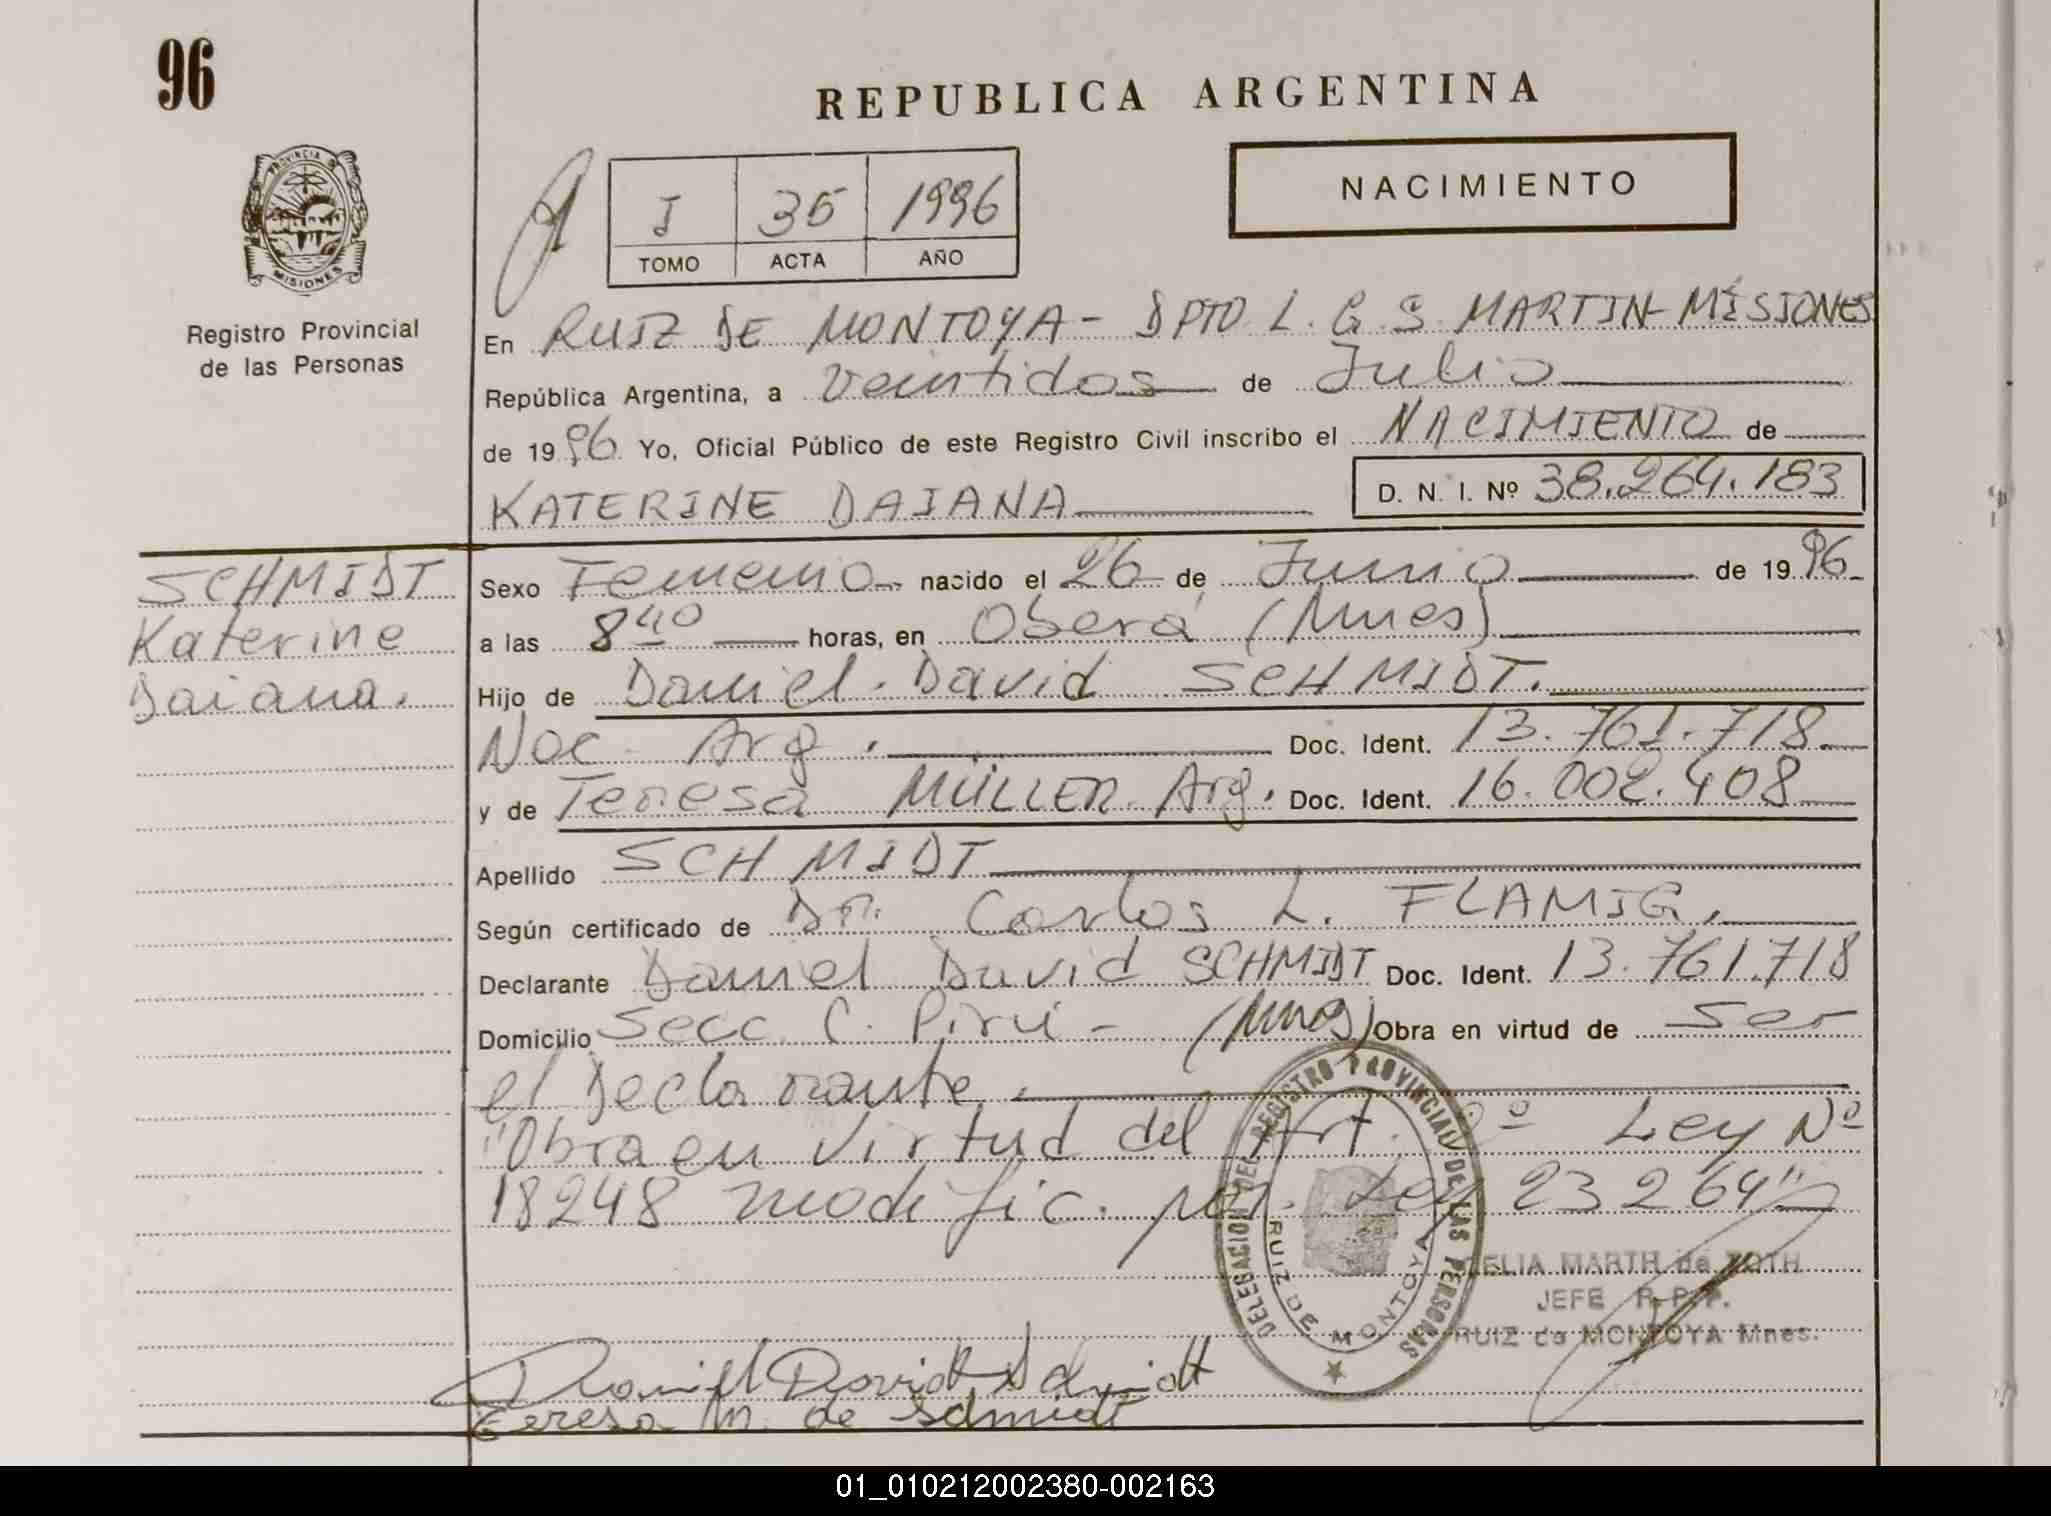 96
REPUBLICA ARGENTINA
PROVINCIA DE
MISIONES
Registro Provincial
de las Personas
I 35 1996
TOMO ACTA AÑO
NACIMIENTO
En RUIZ DE MONTOYA - DPTO. L. G. S. MARTIN-MISIONES
República Argentina, a veintidos de Julio
de 1996 Yo, Oficial Público de este Registro Civil inscribo el NACIMIENTO de
KATERINE DAIANA D. N. I. Nº 38.264.183
SCHMIDT
Katerine
Daiana.
Sexo Femenino nacido el 26 de Junio de 1996
a las 8 40 horas, en Oberá (Mnes)
Hijo de Daniel David SCHMIDT.
Nac. Arg. Doc. Ident. 13.761.718
y de Teresa MÜLLER Arg. Doc. Ident. 16.002.408
Apellido SCHMIDT
Según certificado de Dr. Carlos L. FLAMIG.
Declarante Daniel David SCHMIDT Doc. Ident. 13.761.718
Domicilio Secc. C. Pirú - (Mnes) Obra en virtud de ser
el Declarante.
"Obra en virtud del Art. Ley Nº
18248 modific. por Ley 23264"
DELEGACION DEL REGISTRO PROVINCIAL DE LAS PERSONAS
RUIZ DE MONTOYA
ELIA MARTH de ZOTH
JEFE R.P.P.
RUIZ de MONTOYA Mnes.
Daniel David Schmidt
Teresa M. de Schmidt
01_010212002380-002163